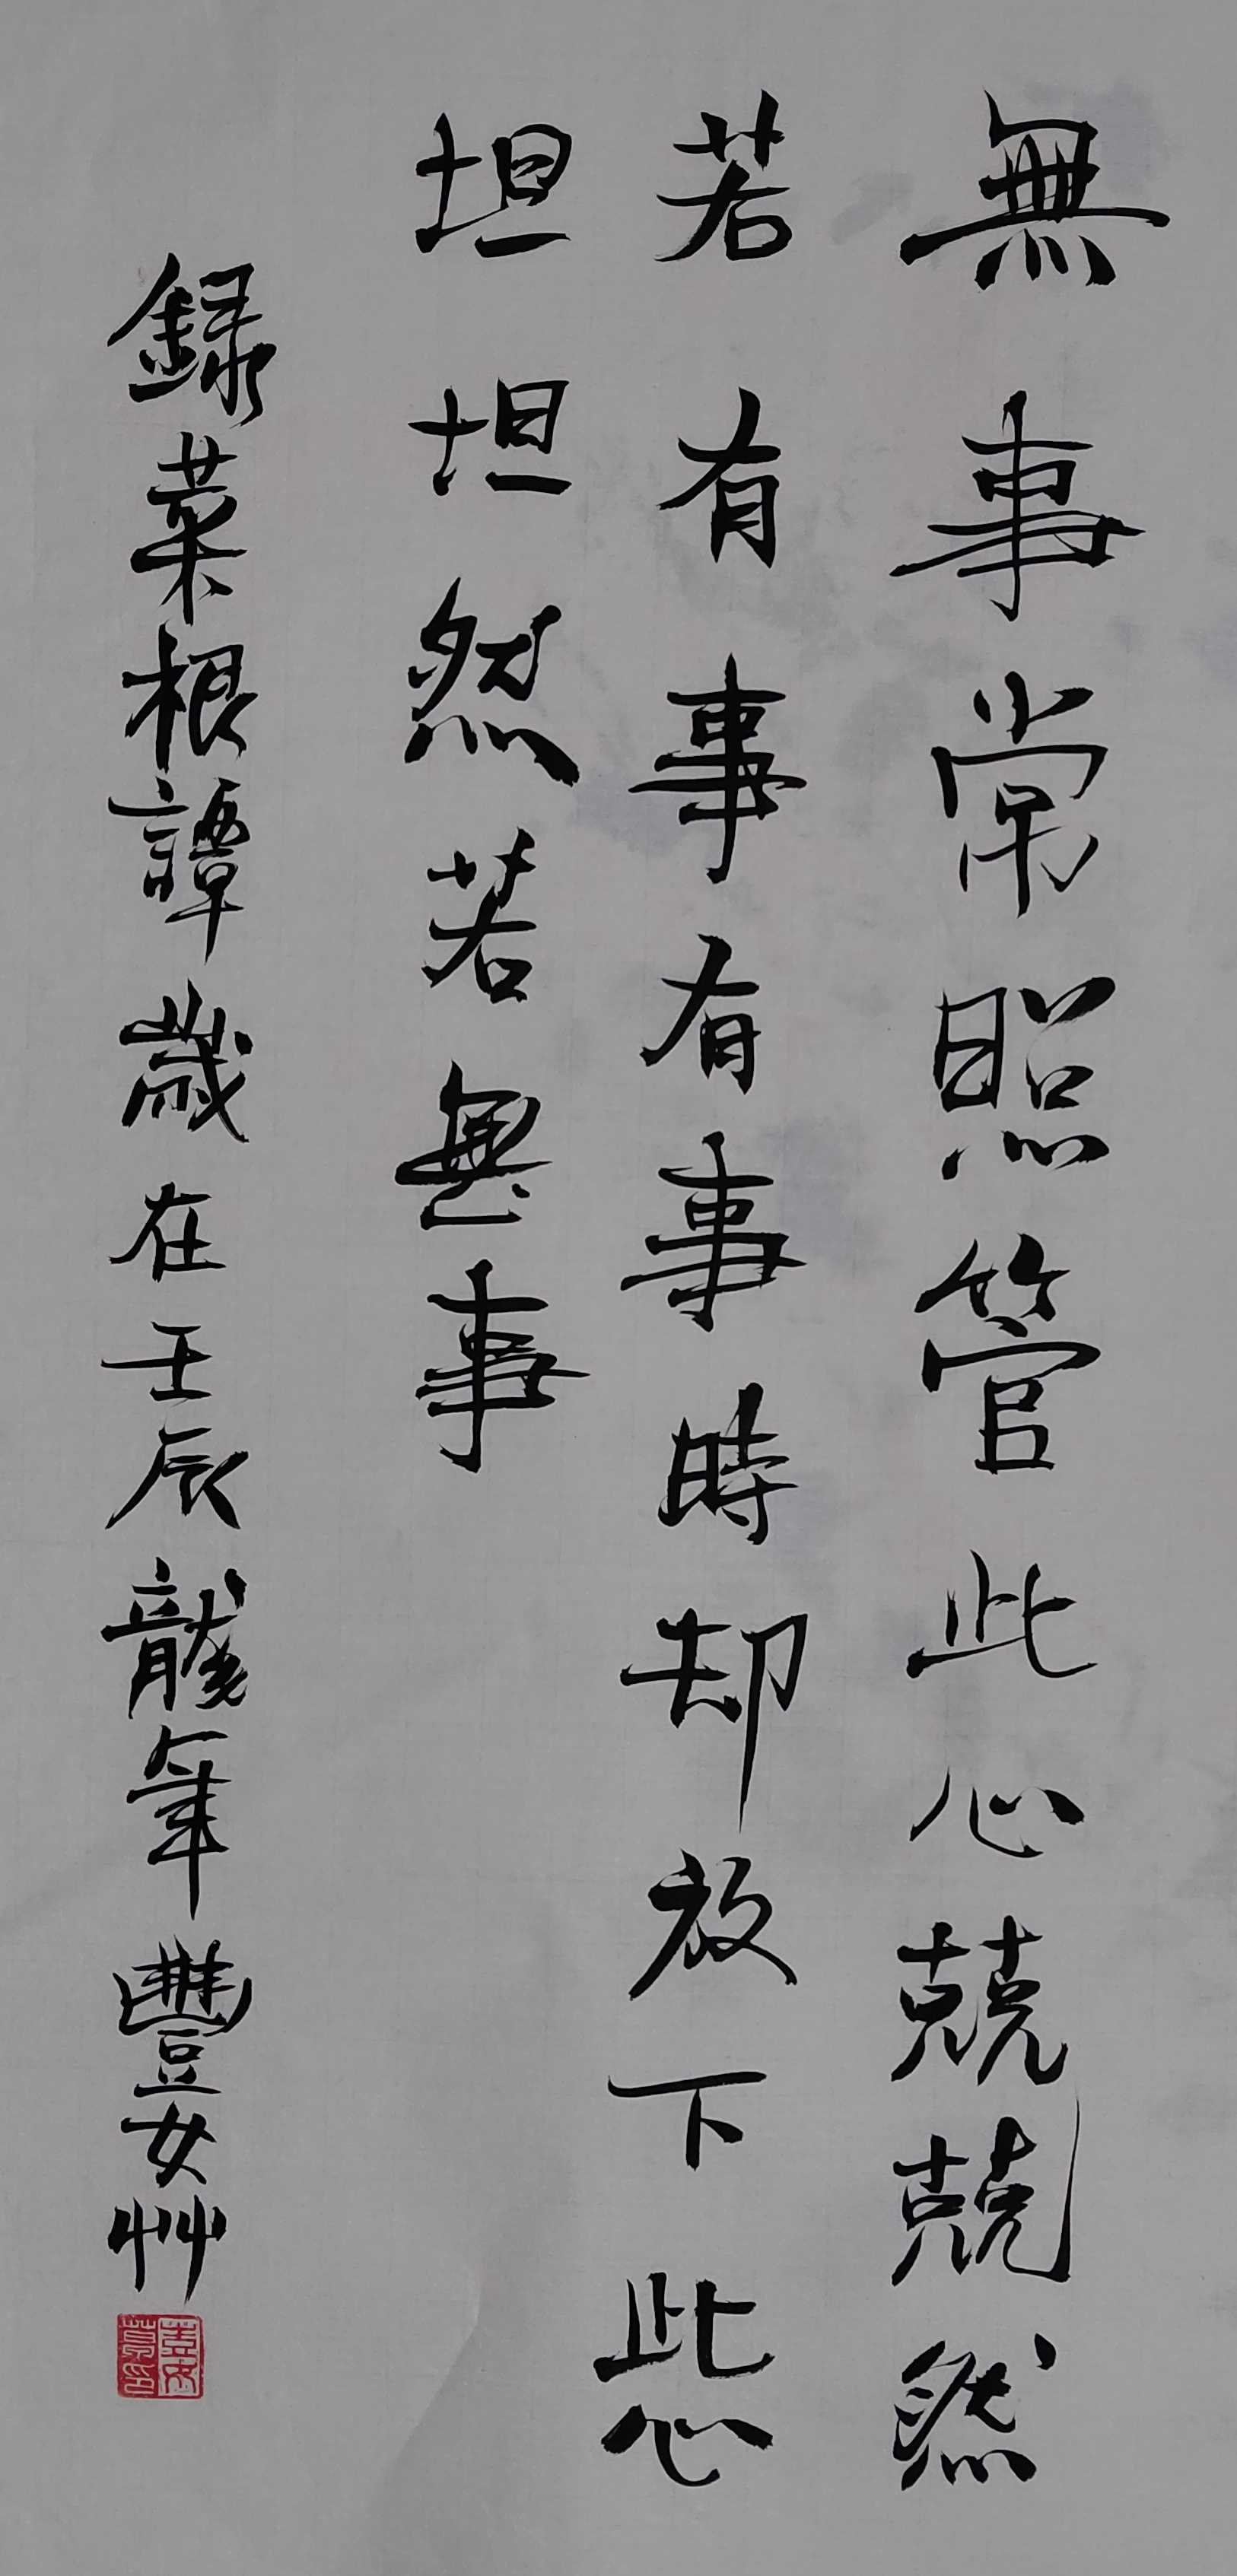 無事常照管此心兢兢然
若有事有事時却放下此心
坦坦然若無事
録菜根譚歲在壬辰龍年豐女艸